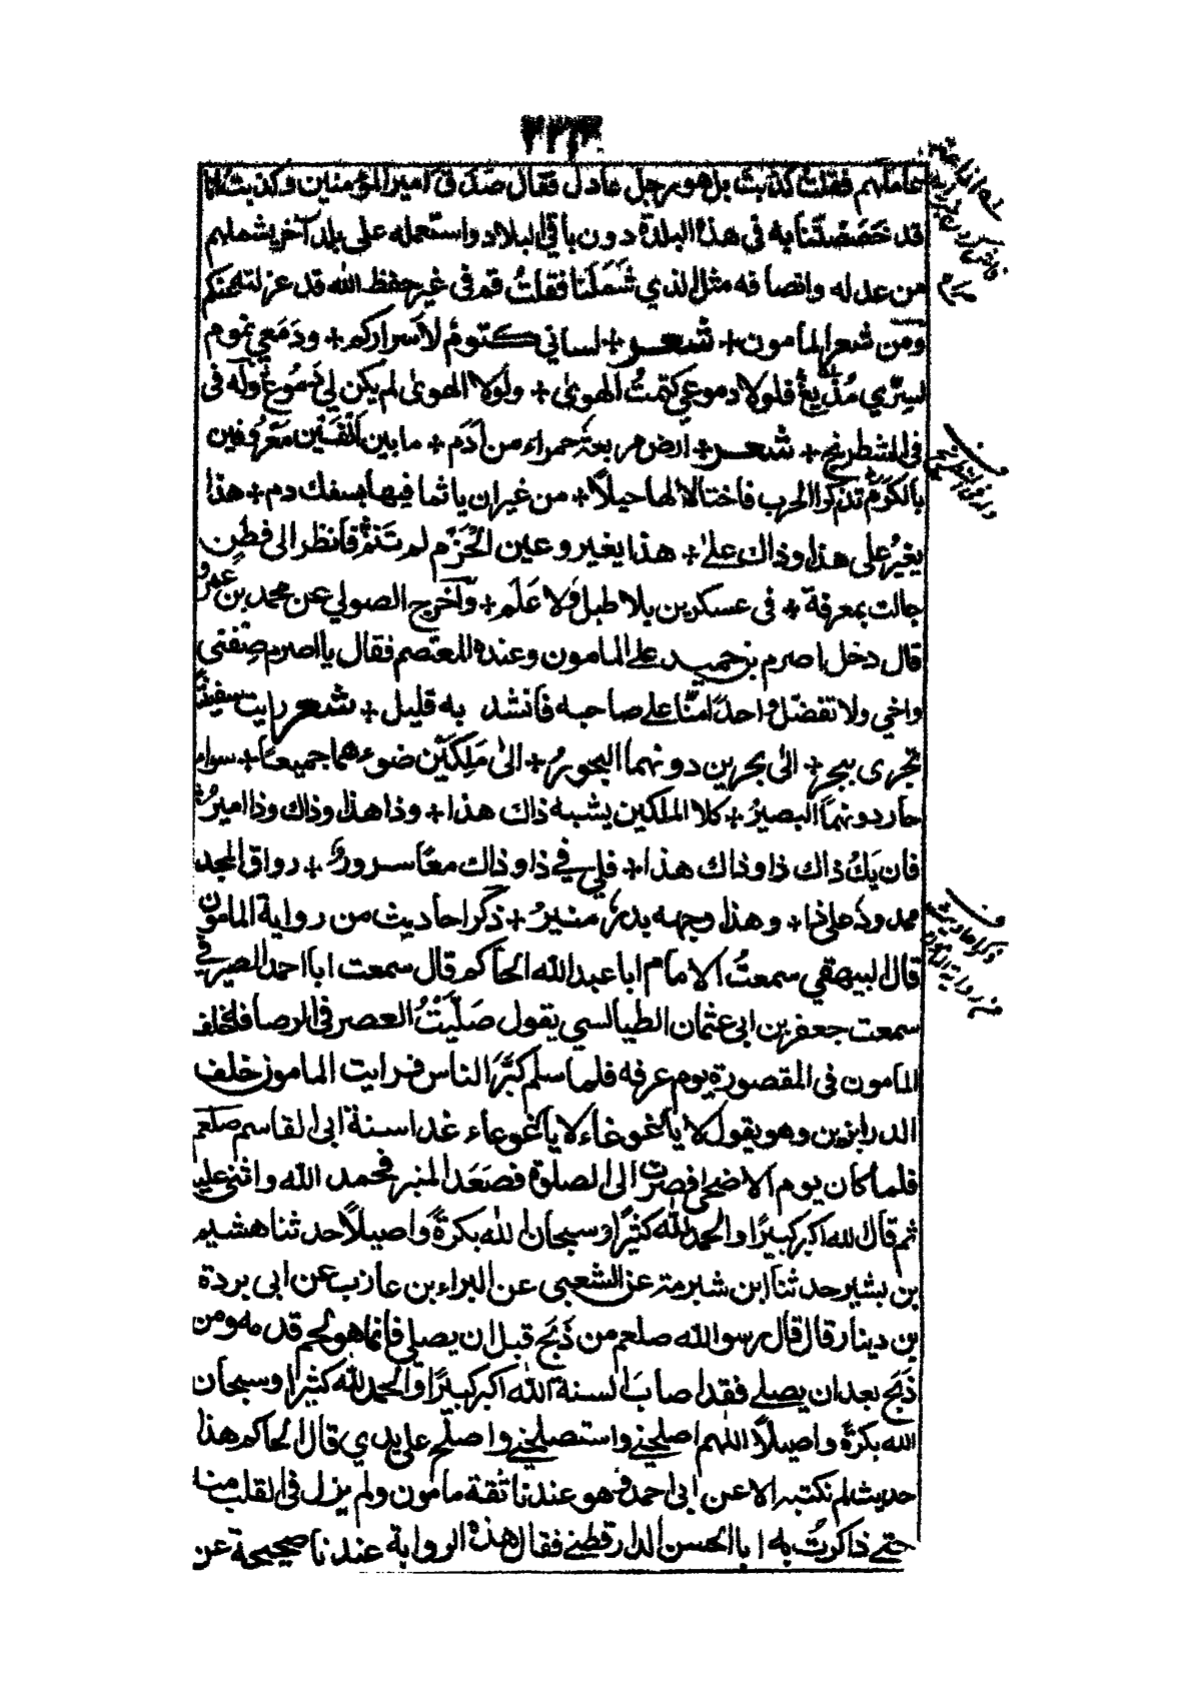 ٢٢٣
عاملهم فقلت كذبت بل هو رجل عادل فقال صدق امير المؤمنين وكذبت انا
قد خصصتنا به فى هذه البلدة دون باقى البلاد واستعمله على بلد آخر يشملهم
من عدله وانصافه مثل الذي شملنا فقلت قم فى غير حفظ الله قد عزلته عنكم
ومن شعر المامون + شعر + لساني كتوم لاسراركم + ودمعي نموم
لسري مذيع فلولا دموعي كتمت الهوى + ولولا الهوى لم يكن لي دموع وله فى
فى الشطرنج + شعر + ارض مربعة حمراء من أدم + ما بين الفين معروفين
بالكرم تذكرا الحرب فاحتالا لها حيلاً + من غير ان ياثما فيها بسفك دم + هذا
يغير على هذا وذاك على + هذا يغير وعين الحزم لم تنم فانظر الى فطن
جالت بمعرفة + فى عسكرين بلا طبل ولا علم + وآخرج الصولي عن محمد بن عمرو
قال دخل اصرم بن حميد على المامون وعنده المعتصم فقال يا اصرم صفنى
واخي ولا تفضل واحدًا منا على صاحبه فانشد به قليل + شعر رايت سفينة
تجرى ببحر + الى بحرين دونهما البحور + الى ملكين ضوءهما جميعا + سواء
حار دونهما البصير + كلا الملكين يشبه ذاك هذا + وذا هذا وذاك وذا امير
فان يك ذاك ذا وذاك هذا + فلي في ذا وذاك معا سرور + رواق المجد
ممدود على ذا + وهذا وجهه بدر منير + ذكر احاديث من رواية المامون
قال البيهقي سمعت الامام ابا عبد الله الحاكم قال سمعت ابا احمد الصيرفي
سمعت جعفر بن ابى عثمان الطيالسي يقول صليت العصر فى الرصافة خلف
المامون فى المقصورة يوم عرفه فلما سلم كبر الناس فرايت المامون خلف
الدرابزين وهو يقول لا يا غوغاء لا يا غوغاء غدا سنة ابى القاسم صلعم
فلما كان يوم الاضحى فصرت الى الصلوة فصعد المنبر فحمد الله واثنى عليه
ثم قال الله اكبر كبيرًا والحمد لله كثيرًا وسبحان الله بكرةً واصيلاً حدثنا هشيم
بن بشير حدثنا ابن شبرمة عن الشعبي عن البراء بن عازب عن ابى بردة
بن دينار قال قال رسو الله صلعم من ذبح قبل ان يصلي فانما هو لحم قدمه ومن
ذبح بعد ان يصلے فقد اصاب السنة الله اكبر كبيرًا والحمد لله كثيرا وسبحان
الله بكرةً واصيلاً اللهم اصلحنے واستصلحنے واصلح على يدي قال الحاكم هذا
حديث لم نكتبه الا عن ابى احمد و هو عندنا ثقة مامون ولم يزل فى القلب منه
حتے ذاكرت به ابا الحسن الدارقطنے فقال هذه الرواية عندنا صحيحة عن